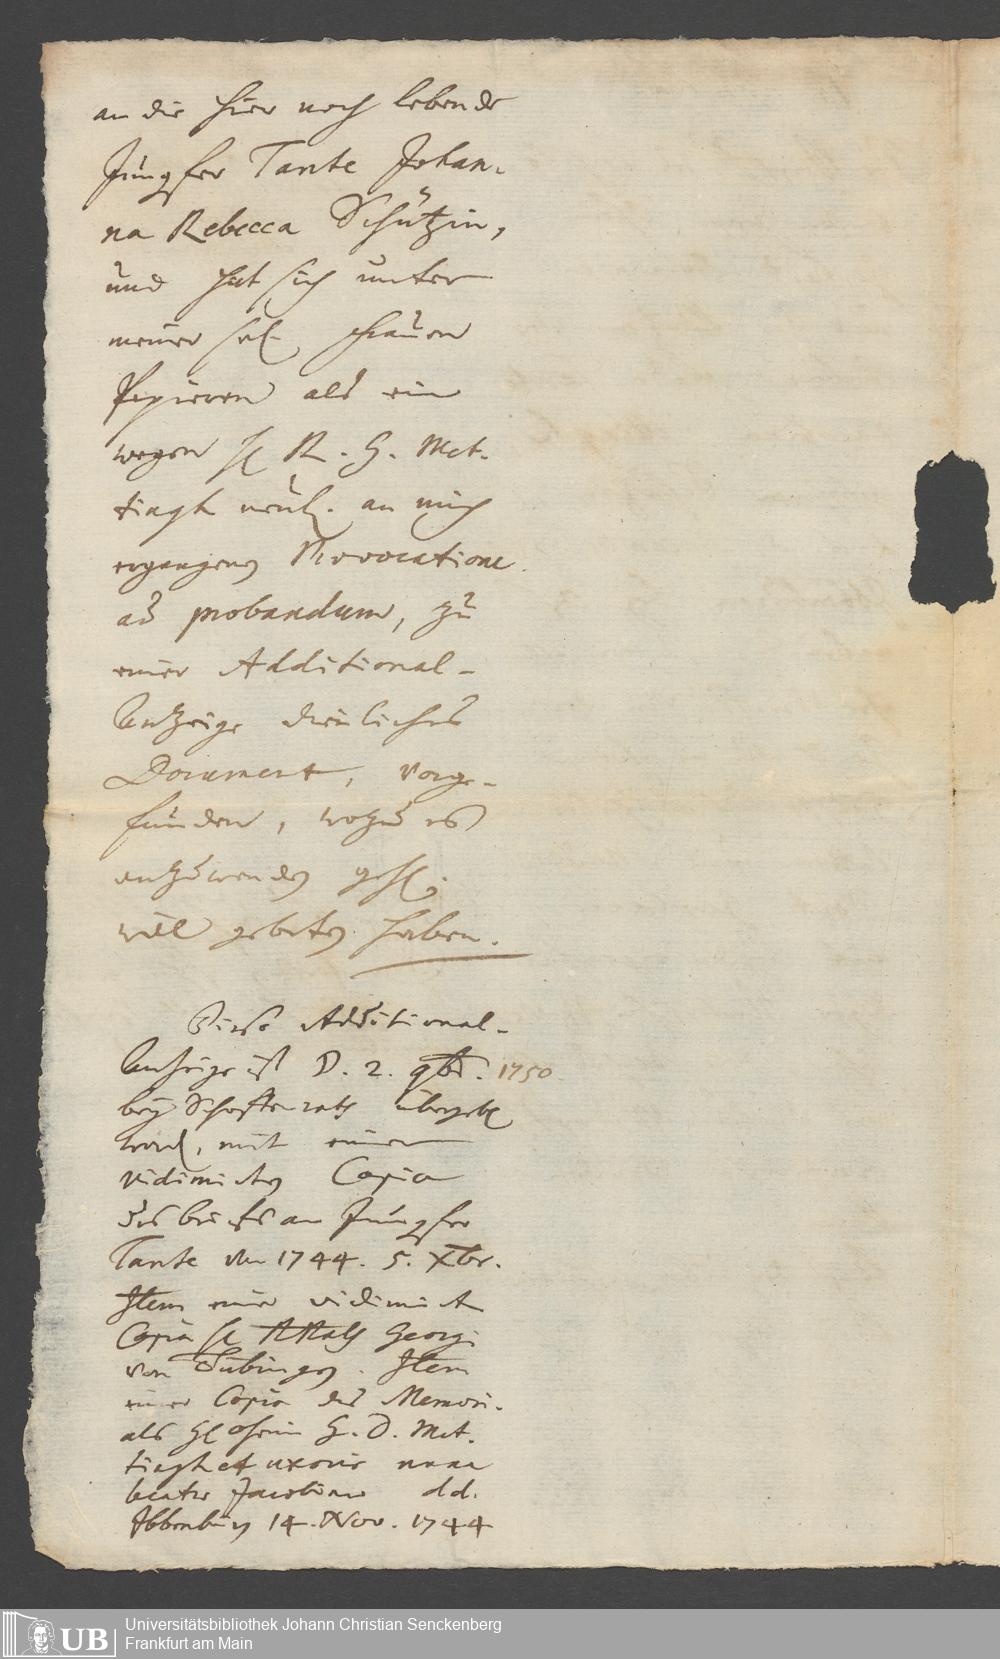 an die hier noch lebende
Jungfer Tante Johan-
na Rebecca Schützin,
und hat sich unter
meiner sel. Frauen
Papieren als ein
wegen H. R. G. Met-
tingh neul. an mich
ergangenen Provocatione
ad probandum, zu
einer Additional-
Anzeige dienliches
Document, vorge-
funden, wozu es
anzuwenden geh.
will gebeten haben.
Diese Additional-
Anzeige ist D. 2. 9br. 1750
bey Schöffenrath übergeb.
word, mit einer
vidimirten Copia
des briefs an Jungfer
Tante von 1744. 5. Xbr.
Item eine vidimirte
Copia H. Raths Georgi
von Tübingen. Item
einer Copia des Memori-
als H. Oheim G. D. Met-
tingh et uxoris nunc
beatae Jacobinae dd.
Ibbenbüren 14. Nov. 1744
UB
Universitätsbibliothek Johann Christian Senckenberg
Frankfurt am Main